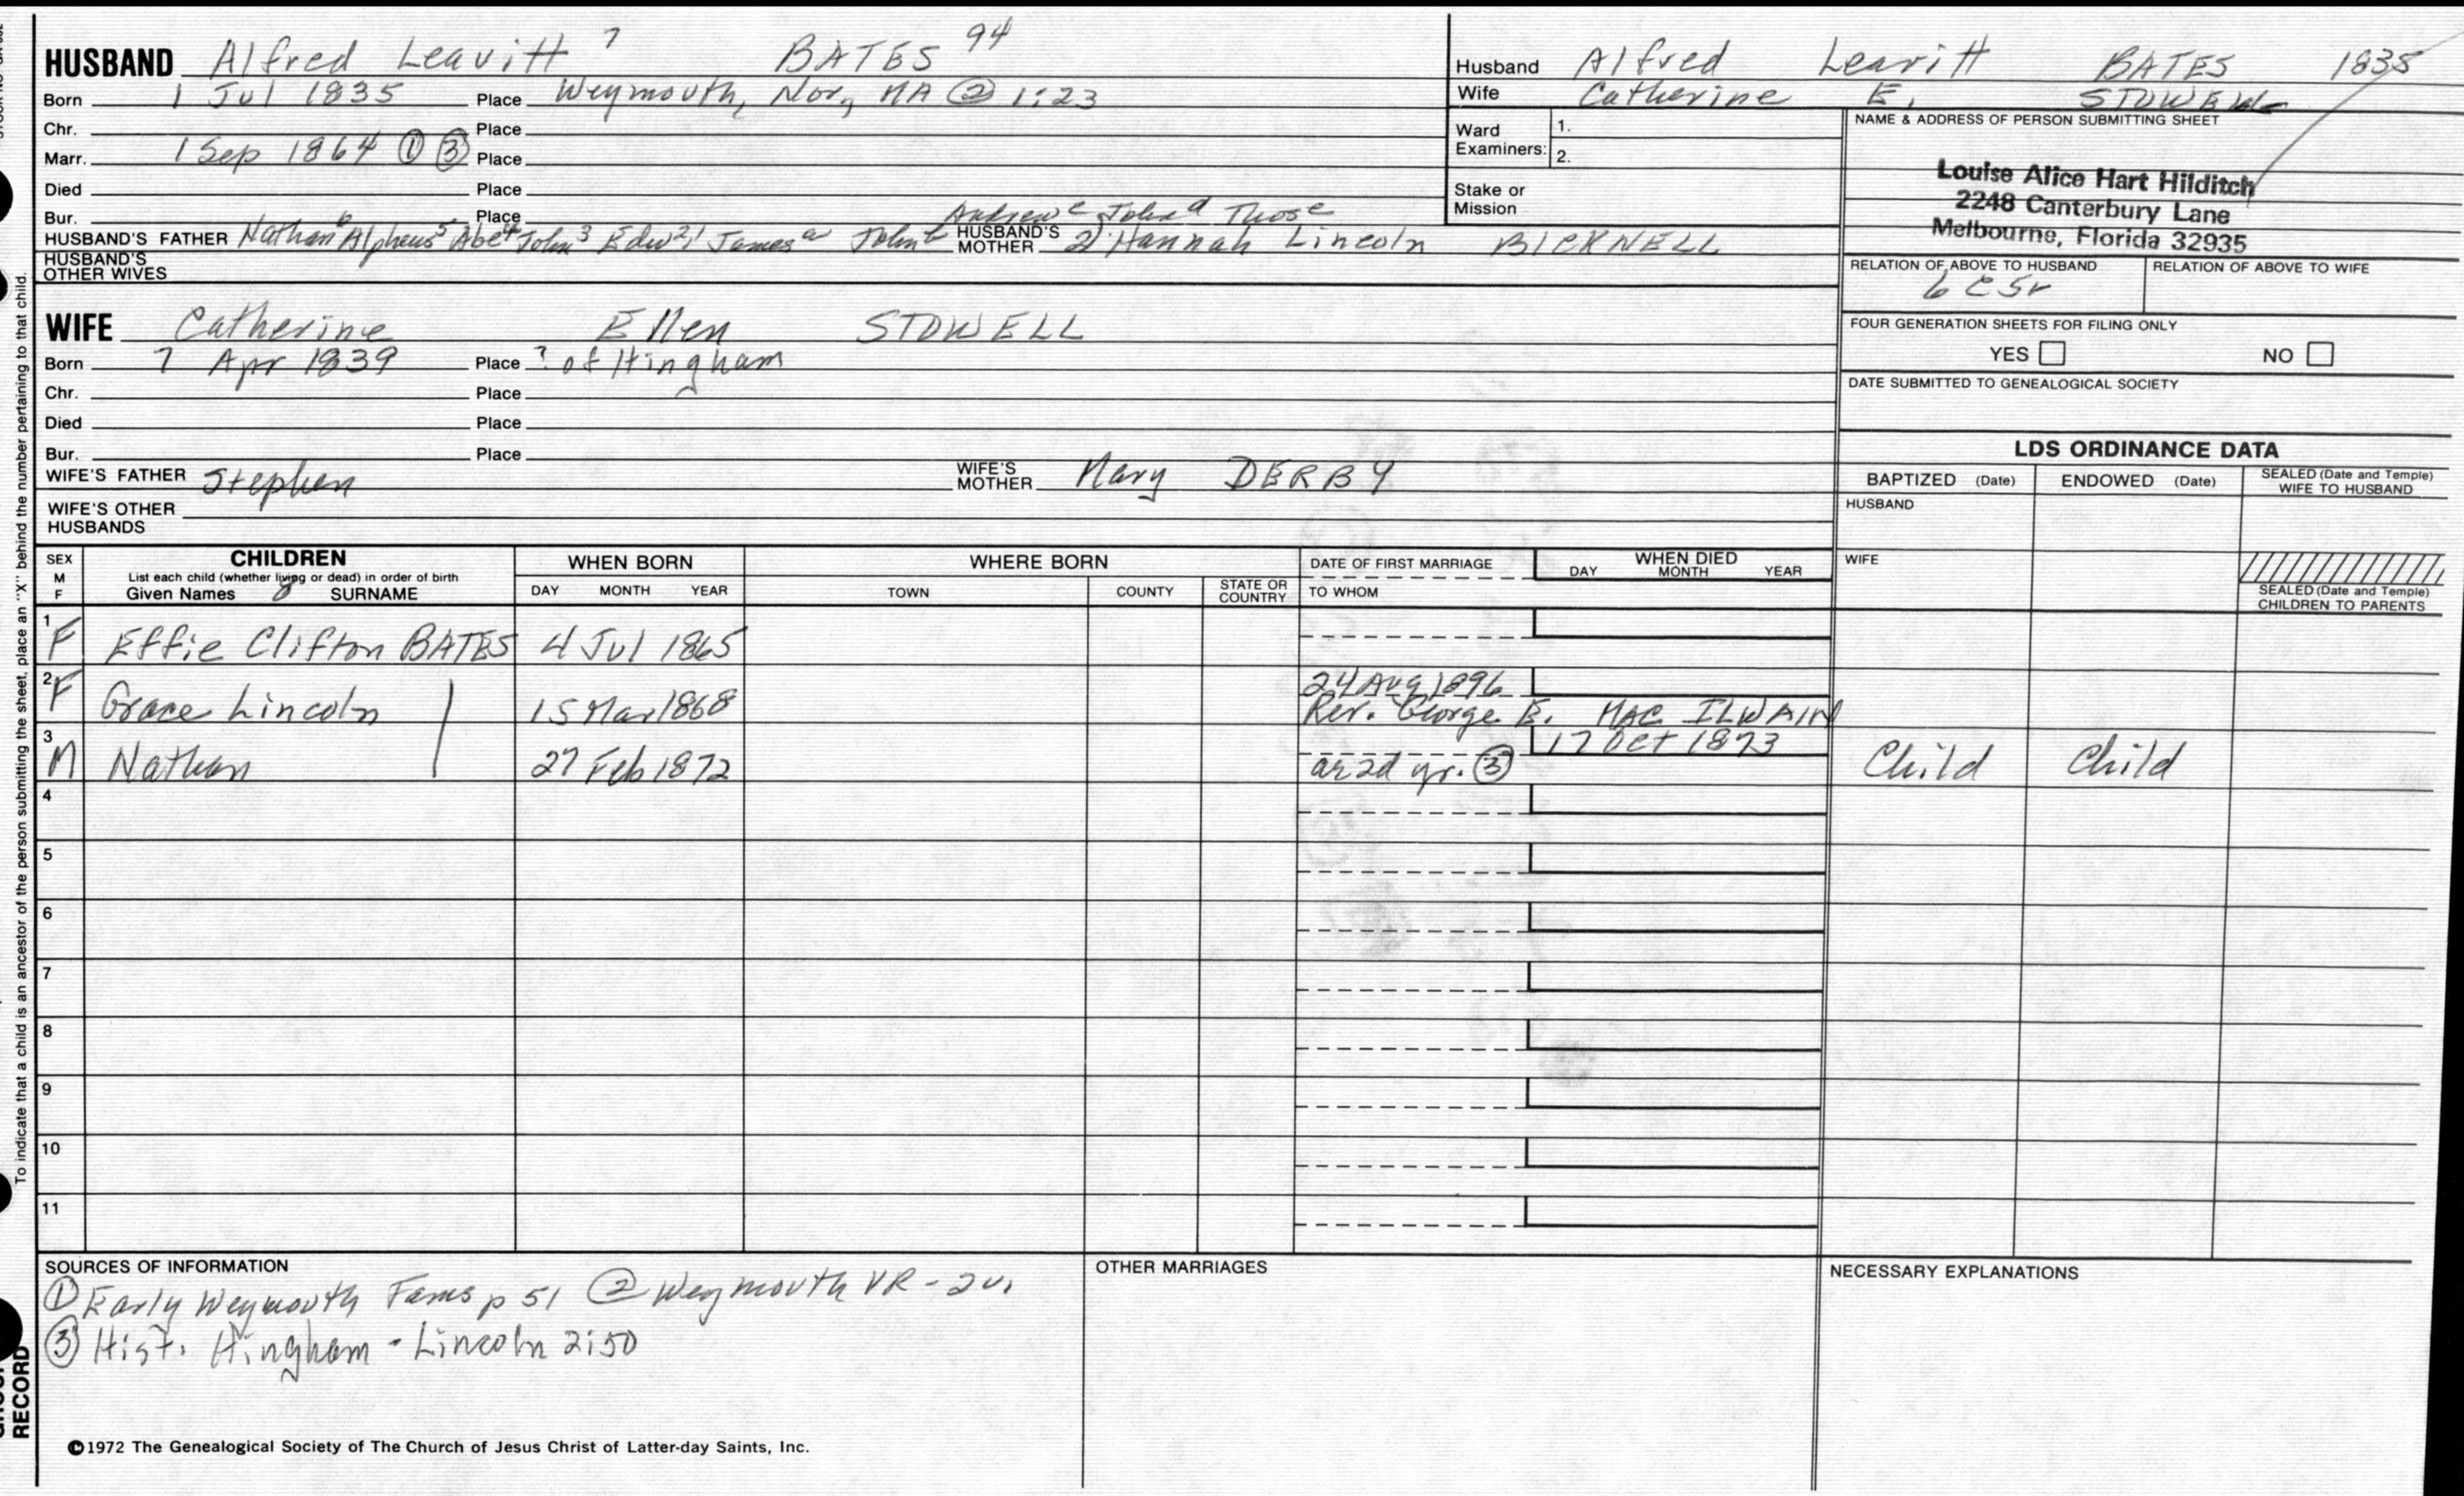 HUSBAND Alfred Leavitt 7 BATES 94
Born 1 Jul 1835 Place Weymouth, Nor, MA ② 1:23
Chr. Place
Marr. 1 Sep 1864 ① ③ Place
Died Place
Bur. Place
Andrew c John d Thos e
HUSBAND'S FATHER Nathan 6 Alpheus 5 Abel 4 John 3 Edw 2, 1 James a John b HUSBAND'S MOTHER 2) Hannah Lincoln BICKNELL
HUSBAND'S OTHER WIVES
WIFE Catherine Ellen STOWELL
Born 7 Apr 1839 Place ? of Hingham
Chr. Place
Died Place
Bur. Place
WIFE'S FATHER Stephen WIFE'S MOTHER Mary DERBY
WIFE'S OTHER HUSBANDS
Husband Alfred Leavitt BATES 1835
Wife Catherine E. STOWELL
Ward Examiners: 1.
2.
Stake or Mission
NAME & ADDRESS OF PERSON SUBMITTING SHEET
Louise Alice Hart Hilditch
2248 Canterbury Lane
Melbourne, Florida 32935
RELATION OF ABOVE TO HUSBAND RELATION OF ABOVE TO WIFE
6 C 5r
FOUR GENERATION SHEETS FOR FILING ONLY
YES NO
DATE SUBMITTED TO GENEALOGICAL SOCIETY
LDS ORDINANCE DATA
BAPTIZED (Date) ENDOWED (Date) SEALED (Date and Temple) WIFE TO HUSBAND
HUSBAND
WIFE
SEALED (Date and Temple) CHILDREN TO PARENTS
SEX M F CHILDREN WHEN BORN WHERE BORN DATE OF FIRST MARRIAGE WHEN DIED
List each child (whether living or dead) in order of birth
Given Names 8 SURNAME DAY MONTH YEAR TOWN COUNTY STATE OR COUNTRY TO WHOM DAY MONTH YEAR
1 F Effie Clifton BATES 4 Jul 1865
2 F Grace Lincoln 15 Mar 1868 24 Aug 1896
Rev. George E. MAC ILWAIN
3 M Nathan 27 Feb 1872 ae 2d yr. ③ 17 Oct 1873 Child Child
4
5
6
7
8
9
10
11
SOURCES OF INFORMATION
① Early Weymouth Fams p 51 ② Weymouth VR - 2v.
③ Hist. Hingham - Lincoln 2:50
OTHER MARRIAGES
NECESSARY EXPLANATIONS
©1972 The Genealogical Society of The Church of Jesus Christ of Latter-day Saints, Inc.
To indicate that a child is an ancestor of the person submitting the sheet, place an "X" behind the number pertaining to that child.
RECORD